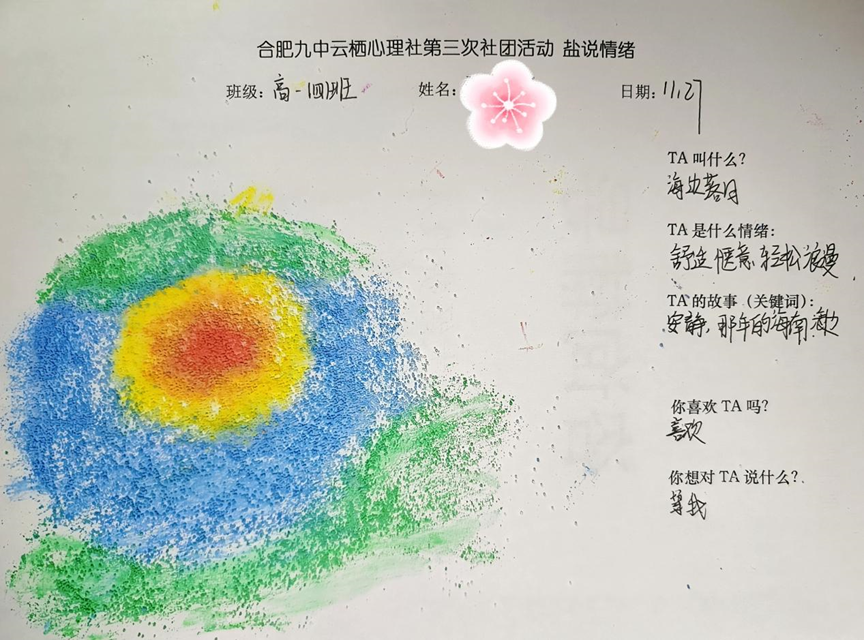 合肥九中云栖心理社第三次社团活动 盐说情绪
班级：高一四班 姓名： 日期：11.27
TA 叫什么？
海边落日
TA 是什么情绪：
舒适 惬意 轻松 浪漫
TA 的故事（关键词）：
安静，那年的海南
你喜欢 TA 吗？
喜欢
你想对 TA 说什么？
等我